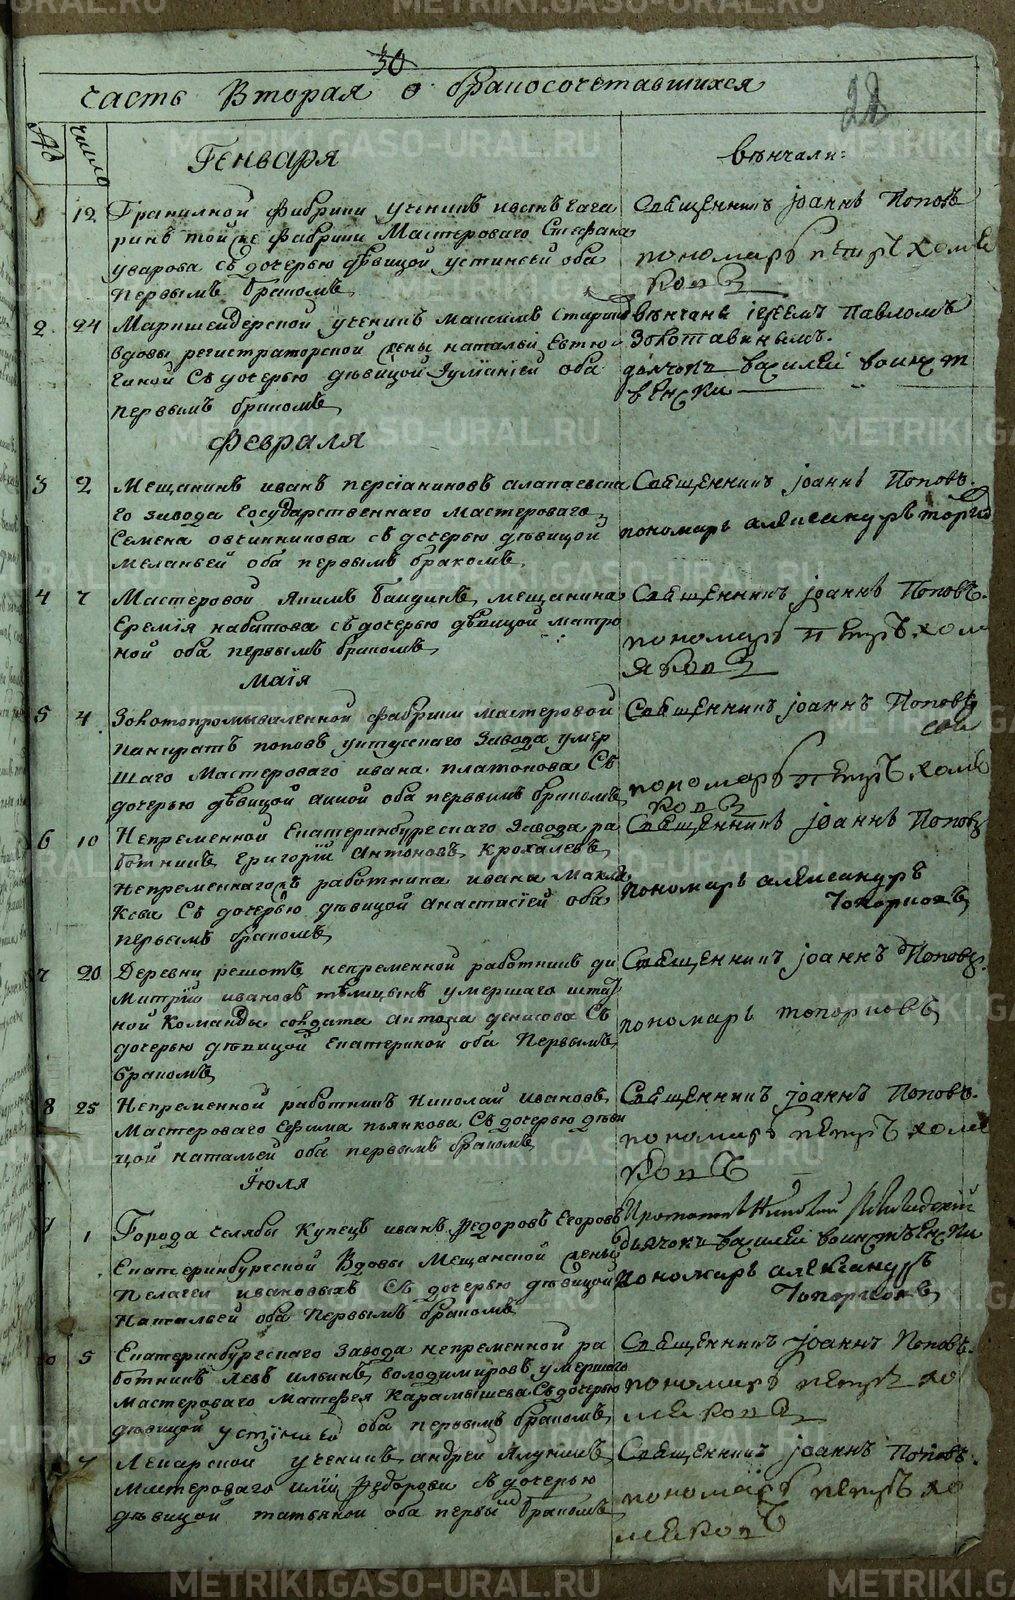 30
часть Вторая о бракосочетавшихся
28
число
Генваря
венчали:
1 12 Гранилной фабрики ученикъ иванъ гага
ринъ той же фабрики Мастероваго Стефана
уварова съ дочерью девицой устиньей оба
первымъ бракомъ
Священникъ Iоаннъ Поповъ
пономарь петръ хомя
ковъ
2 24 Маркшейдерской ученикъ Максимъ
вдовы регистраторской жены натальи Евтю
гиной Съ дочерью девицой оба
первымъ бракомъ
венчанъ Iереемъ Павломъ
Золотавинымъ.
дьячокъ василей воинст
венски
Февраля
3 2 Мещанинъ иванъ персіаниновъ алапаевска
го завода Государственнаго мастероваго
Семена овчинникова съ дочерью девицой
меланьей оба первымъ бракомъ
Священникъ Iоаннъ Поповъ.
пономарь александръ
4 7 Мастеровой Якимъ мещанина
Еремія набатова съ дочерью девицой матро
ной оба первымъ бракомъ
Священникъ Iоаннъ Поповъ.
пономарь петръ хом
яковъ
Маія
5 4 Золотопромываленной фабрики мастеровой
панкратъ поповъ уктусскаго Завода умер
шаго Мастероваго ивана платонова Съ
дочерью девицой анной оба первымъ бракомъ
Священникъ Iоаннъ Поповъ
пономарь петръ хомя
ковъ
6 10 Непременной Екатеринбургскаго Завода ра
ботникъ григорій Антоновъ Крохалевъ
Непременнагожъ работника ивана
Съ дочерью девицой анастасіей оба
первымъ бракомъ
Священникъ Iоаннъ Поповъ
пономарь александръ
Топорковъ
7 20 Деревни решотъ непременной работникъ ди
митрій ивановъ телицынъ умершаго штат
ной Команды солдата антона денисова Съ
дочерью девицой Екатериной оба Первымъ
бракомъ
Священникъ Iоаннъ Поповъ.
пономарь топорковъ
8 25 Непременной работникъ Николай ивановъ
Мастероваго Ефима пьянкова Съ дочерью деви
цой натальей оба первымъ бракомъ
Священникъ Iоаннъ Поповъ.
пономарь петръ хомя
ковъ
Iюля
1 Города челябы Купецъ иванъ федоровъ Егоровъ
Екатеринбургской Вдовы Мещанской жены
Пелагеи ивановыхъ Съ дочерью девицой
Натальей оба Первымъ бракомъ
дьячокъ василей воинственски
пономарь александръ
Топорковъ
10 5 Екатеринбургскаго Завода непременной ра
ботникъ левъ ильинъ володимировъ умершаго
мастероваго Матфея Карамышева Съ дочерью
девицой устиньей оба первымъ бракомъ
Священникъ Iоаннъ Поповъ.
пономарь петръ хо
мяковъ
7 Лекарской ученикъ андрей
Мастероваго ильи Федорова Съ дочерью
девицой татьяной оба первымъ бракомъ
Священникъ Iоаннъ Поповъ.
пономарь петръ хо
мяковъ
METRIKI.GASO-URAL.RU